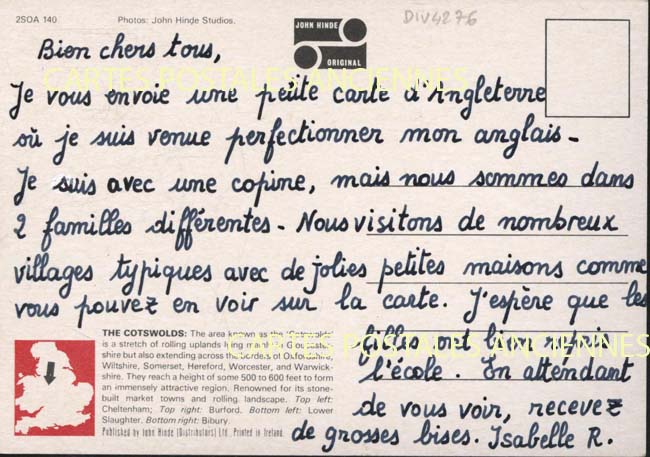 2SOA 140
Photos: John Hinde Studios.
JOHN HINDE
ORIGINAL
DIV4276
CARTES POSTALES ANCIENNES
Bien chers tous,
Je vous envoie une petite carte d'Angleterre
où je suis venue perfectionner mon anglais -
Je suis avec une copine, mais nous sommes dans
2 familles différentes - Nous visitons de nombreux
villages typiques avec de jolies petites maisons comme
vous pouvez en voir sur la carte. J'espère que les
filles ont bien repris
l'école. En attendant
de vous voir, recevez
de grosses bises. Isabelle R.
CARTES POSTALES ANCIENNES
THE COTSWOLDS: The area known as the 'Cotswolds'
is a stretch of rolling uplands lying mainly in Gloucester-
shire but also extending across the borders of Oxfordshire,
Wiltshire, Somerset, Hereford, Worcester, and Warwick-
shire. They reach a height of some 500 to 600 feet to form
an immensely attractive region. Renowned for its stone-
built market towns and rolling landscape. Top left:
Cheltenham; Top right: Burford. Bottom left: Lower
Slaughter. Bottom right: Bibury.
Published by John Hinde (Distributors) Ltd. Printed in Ireland.